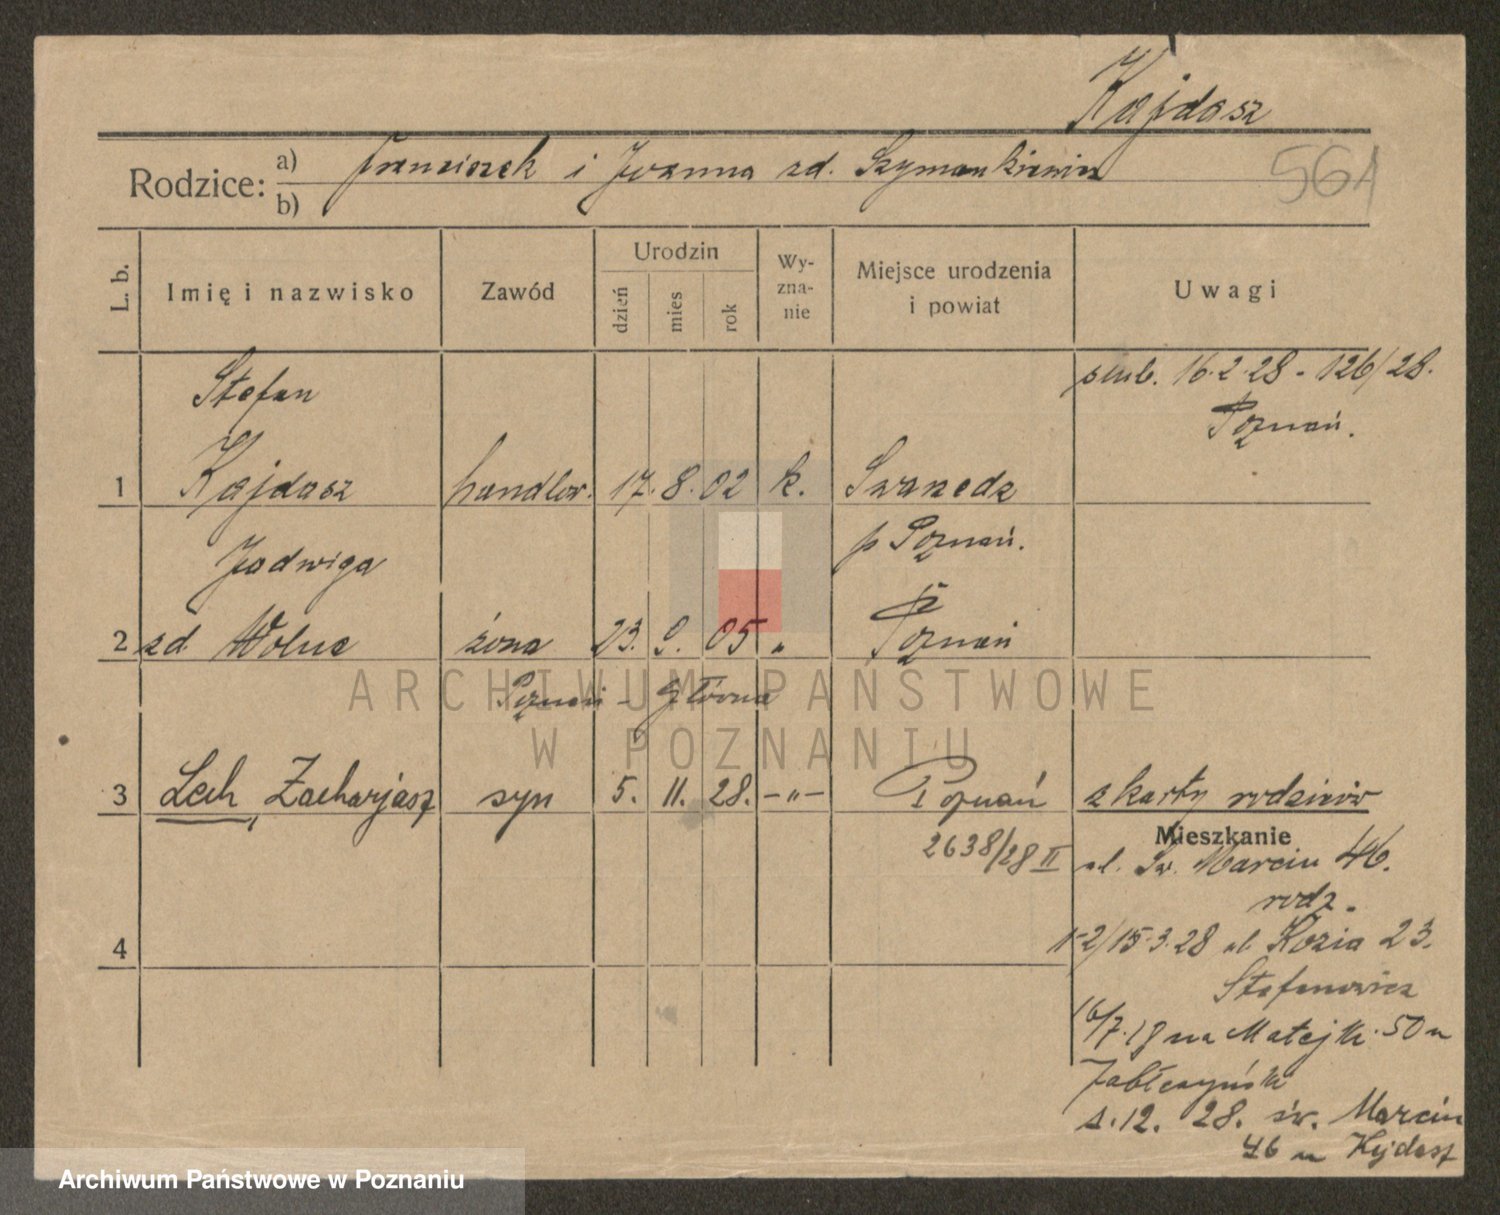 Kajdasz
Rodzice: a) Franciszek i Joanna zd. Szymankiewicz
b)
561
L. b. Imię i nazwisko Zawód Urodzin dzień mies rok Wyznanie Miejsce urodzenia i powiat Uwagi
Stefan ślub. 16.2.28 - 126/28.
Poznań.
1 Kajdasz handlow. 17. 8. 02 k. Swarzedz
Jadwiga p Poznań.
2 zd Wolna żona 23. 9. 05 " Poznań
Poznań - Główna
3 Lech, Zacharjasz syn 5. 11. 28. -"- Poznań z karty rodziców
2638/28 II
Mieszkanie
ul. Św. Marcin 46.
rodz.
4
1-2/15.3.28 ul Kozia 23.
Stefanowicz
16/7.18 na Matejki 50 u
s.12. 28. św. Marcin
46 u Kajdasz
ARCHIWUM PAŃSTWOWE
W POZNANIU
Archiwum Państwowe w Poznaniu